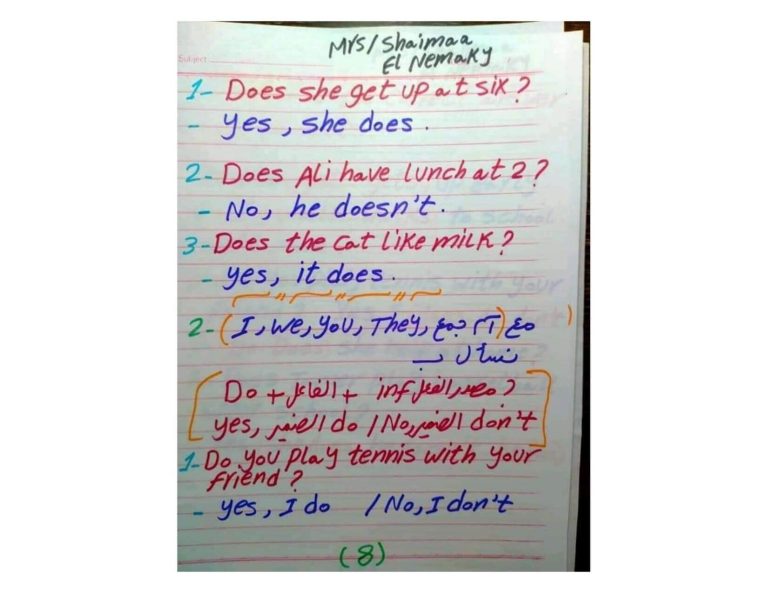 Subject
Mrs/Shaimaa
El Nemaky
1- Does she get up at six?
- yes, she does.
2- Does Ali have lunch at 2?
- No, he doesn't.
3- Does the cat like milk?
- yes, it does.
2- (I, we, you, They, مع (اسم جمع
نسأل بـ
Do + الفاعل + inf مصدر الفعل ?
yes, الضمير do / No, الضمير don't
1- Do you play tennis with your
friend?
- yes, I do / No, I don't
(8)